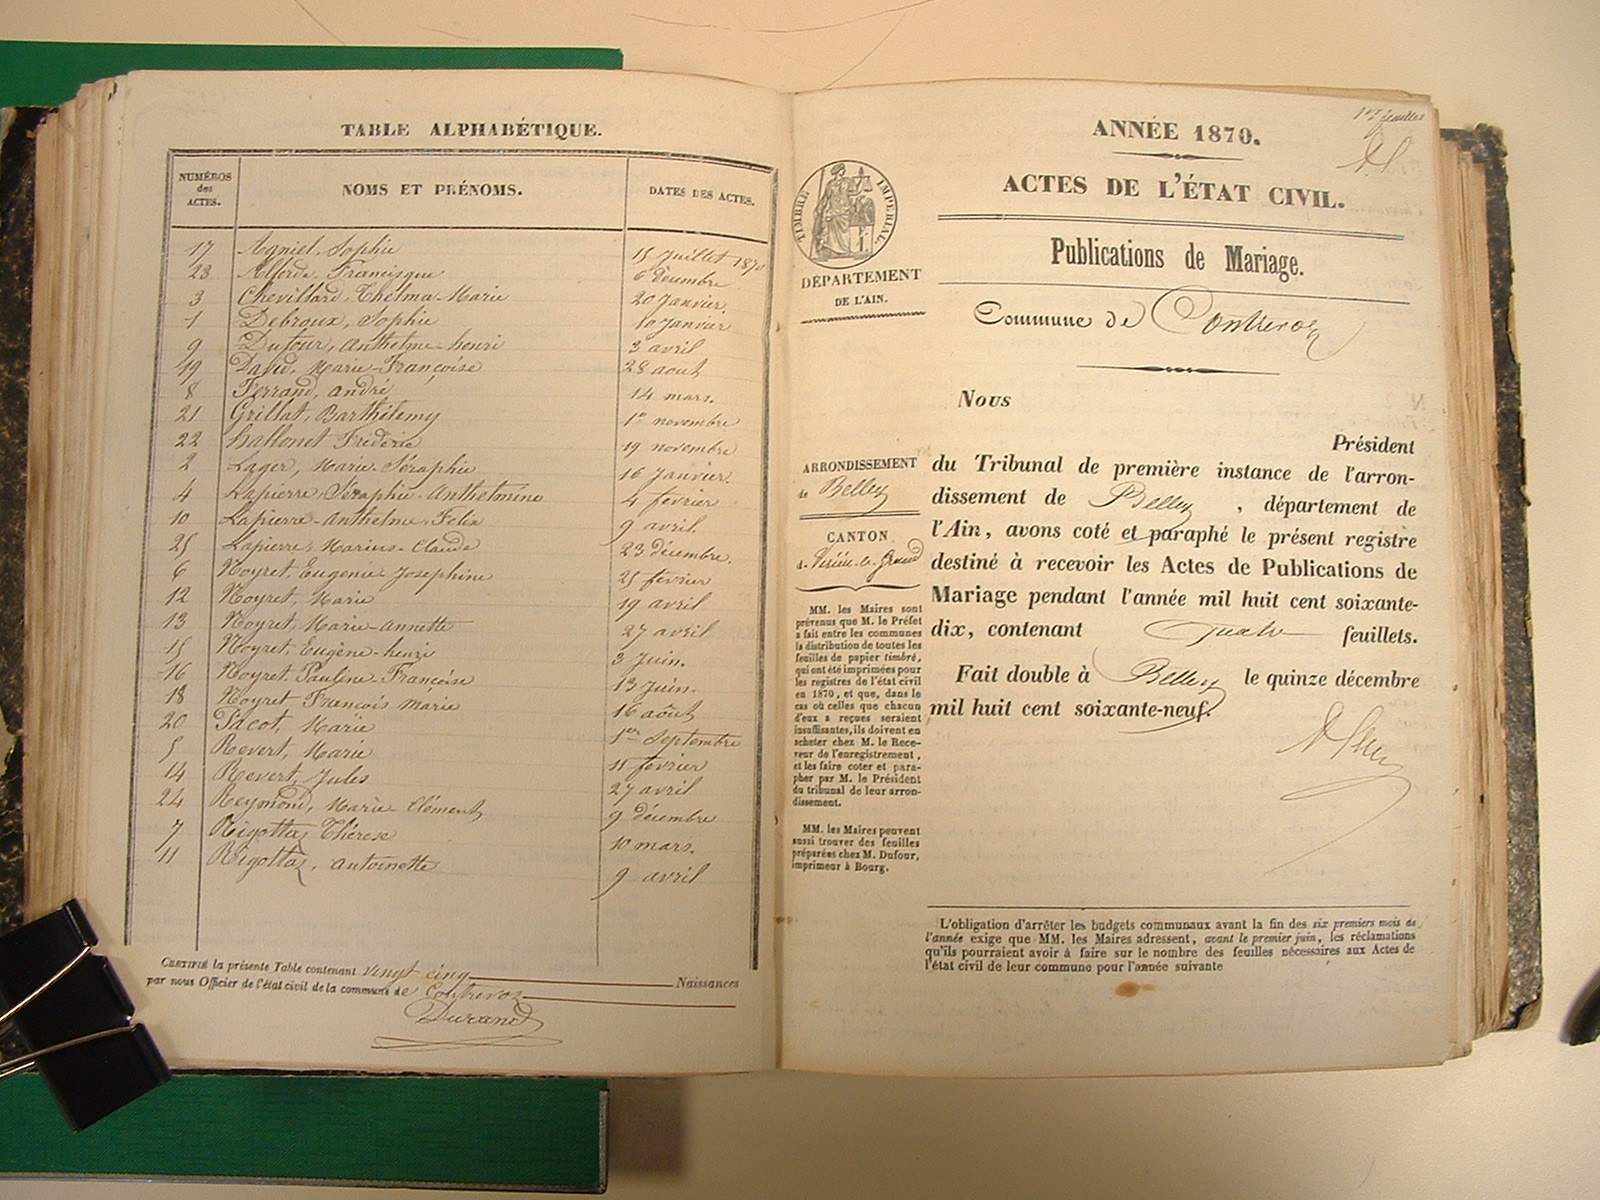 TABLE ALPHABÉTIQUE.
NUMÉROS des ACTES. NOMS ET PRÉNOMS. DATES DES ACTES.
17 Agniel, Sophie 15 Juillet 1870
23 Francisque 6 décembre
3 Chevillard, Thelma-Marie 20 Janvier.
1 Debroux, Sophie 10 Janvier
9 Dufour, Anthelme-henri 3 avril
19 David, Marie-Françoise 28 aout
8 Ferrand, andré 14 mars.
21 Grillat, Barthélemy 1er novembre
22 hallonet Fréderic 19 novembre
2 Lager, Marie-Séraphie 16 Janvier.
4 Lapierre, Séraphie-Anthelmine 4 février
10 Lapierre-Anthelme-Felix 9 avril.
25 Lapierre, Marius-Claude 23 décembre.
6 Noyret, Eugenie-Josephine 25 février
12 Noyret, Marie 19 avril
13 Noyret, Marie-annette 27 avril
15 Noyret, Eugène-henri 3 Juin.
16 Noyret, Pauline-Françoise 13 Juin.
18 Noyret François Marie 16 août
20 Pacot, Marie 1er Septembre
5 Revert, Marie 11 février
14 Revert, Jules 27 avril
24 Reymond, Marie-Clément 9 décembre
7 Rigottaz Thérese 10 mars.
11 Rigottaz, antoinette 9 avril
CERTIFIÉ la présente Table contenant Vingt cinq Naissances
par nous Officier de l'état civil de la commune de Contrevoz
Durand
1er feuillet
ANNÉE 1870.
ACTES DE L'ÉTAT CIVIL.
Publications de Mariage.
TIMBRE IMPÉRIAL.
DÉPARTEMENT
DE L'AIN.
Commune de Contrevoz
ARRONDISSEMENT
de Belley
CANTON
de Virieu-le-Grand
MM. les Maires sont
prévenus que M. le Préfet
a fait entre les communes
la distribution de toutes les
feuilles de papier timbré,
qui ont été imprimées pour
les registres de l'état civil
en 1870, et que, dans le
cas où celles que chacun
d'eux a reçues seraient
insuffisantes, ils doivent en
acheter chez M. le Rece-
veur de l'enregistrement,
et les faire coter et para-
pher par M. le Président
du tribunal de leur arron-
dissement.
MM. les Maires peuvent
aussi trouver des feuilles
préparées chez M. Dufour,
imprimeur à Bourg.
Nous
Président
du Tribunal de première instance de l'arron-
dissement de Belley, département de
l'Ain, avons coté et paraphé le présent registre
destiné à recevoir les Actes de Publications de
Mariage pendant l'année mil huit cent soixante-
dix, contenant quatre feuillets.
Fait double à Belley le quinze décembre
mil huit cent soixante-neuf.
L'obligation d'arrêter les budgets communaux avant la fin des six premiers mois de
l'année exige que MM. les Maires adressent, avant le premier juin, les réclamations
qu'ils pourraient avoir à faire sur le nombre des feuilles nécessaires aux Actes de
l'état civil de leur commune pour l'année suivante